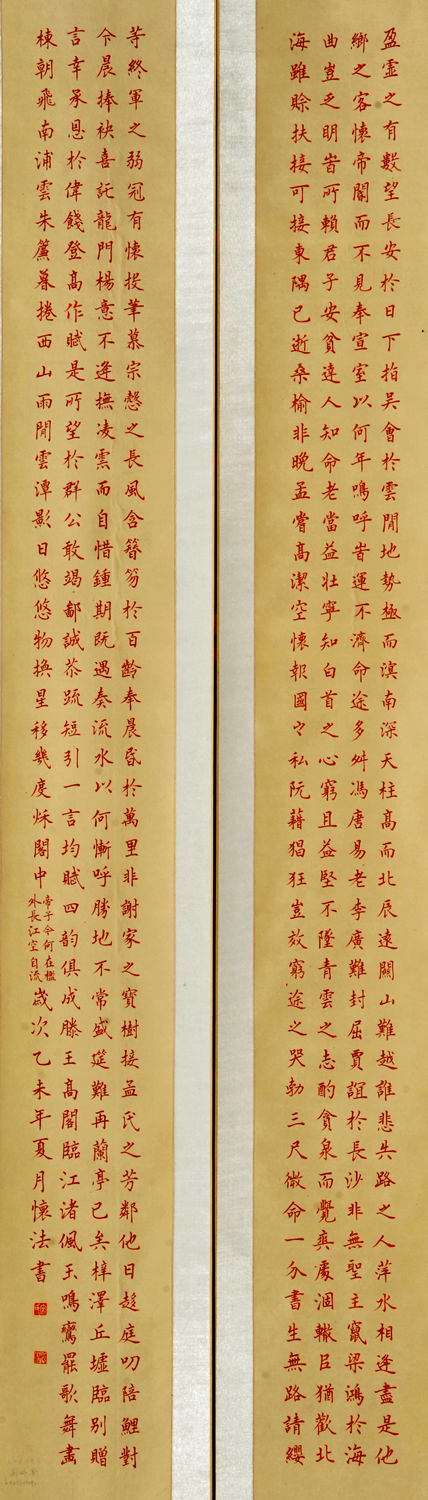 盈虛之有數望長安於日下指吳會於雲閒地勢極而溟南深天柱高而北辰遠關山難越誰悲失路之人萍水相逢盡是他
鄉之客懷帝閽而不見奉宣室以何年嗚呼旹運不濟命途多舛馮唐易老李廣難封屈賈誼於長沙非無聖主竄梁鴻於海
曲豈乏明旹所賴君子安貧達人知命老當益壯寧知白首之心窮且益堅不墜青雲之志酌貪泉而覺爽處涸轍㠯猶歡北
海雖賒扶接可接東隅已逝桑榆非晚孟嘗高潔空懷報國之私阮藉猖狂豈放窮途之哭勃三尺微命一介書生無路請纓
等終軍之弱冠有懷投筆慕宗愨之長風舍簪笏於百齡奉晨昏於萬里非謝家之寶樹接孟氏之芳鄰他日趨庭叨陪鯉對
今晨捧袂喜託龍門楊意不逢撫凌雲而自惜鍾期既遇奏流水以何慚呼勝地不常盛筵難再蘭亭已矣梓澤丘墟臨別贈
言幸承恩於偉餞登高作賦是所望於群公敢竭鄙誠恭疏短引一言均賦四韵俱成滕王高閣臨江渚佩玉鳴鸞罷歌舞畫
棟朝飛南浦雲朱簾暮捲西山雨閒雲潭影日悠悠物換星移幾度秋閣中帝子今何在檻外長江空自流歲次乙未年夏月懷法書